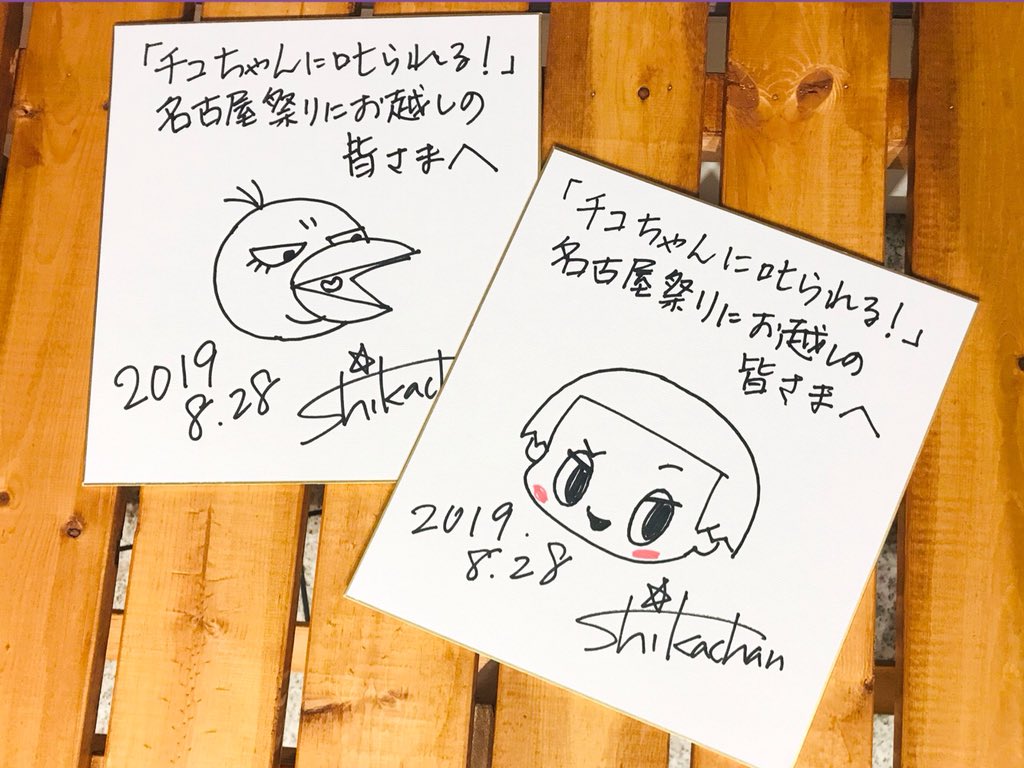 「チコちゃんに叱られる!」
名古屋祭りにお越しの
皆さまへ
2019
8.28
Shikach
「チコちゃんに叱られる!」
名古屋祭りにお越しの
皆さまへ
2019.
8.28
Shikachan